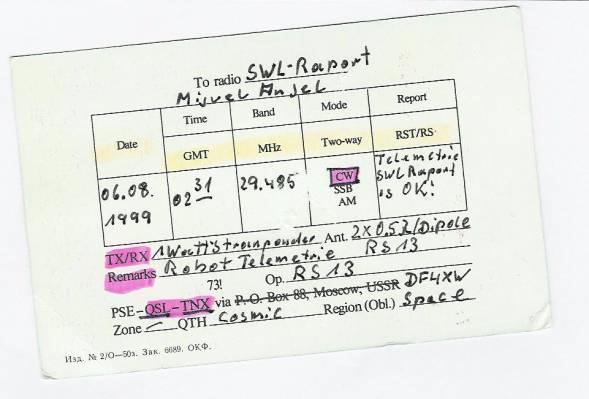 To radio SWL-Raport
Miguel Angel
Date Time Band Mode Report
GMT MHz Two-way RST/RS
06.08. 1999 02 31 29.485 CW SSB AM Telemetrie SWL Raport is OK!
TX/RX 1 Watt/ Ant. 2x0.5λ/Dipole
Remarks Robot Telemetrie RS13
73! Op. RS13
PSE-QSL-TNX via P. O. Box 88, Moscow, USSR DF4XW
Zone — QTH Cosmic Region (Obl.) Space
Изд. № 2/О—50з. Зак. 6689. ОКФ.